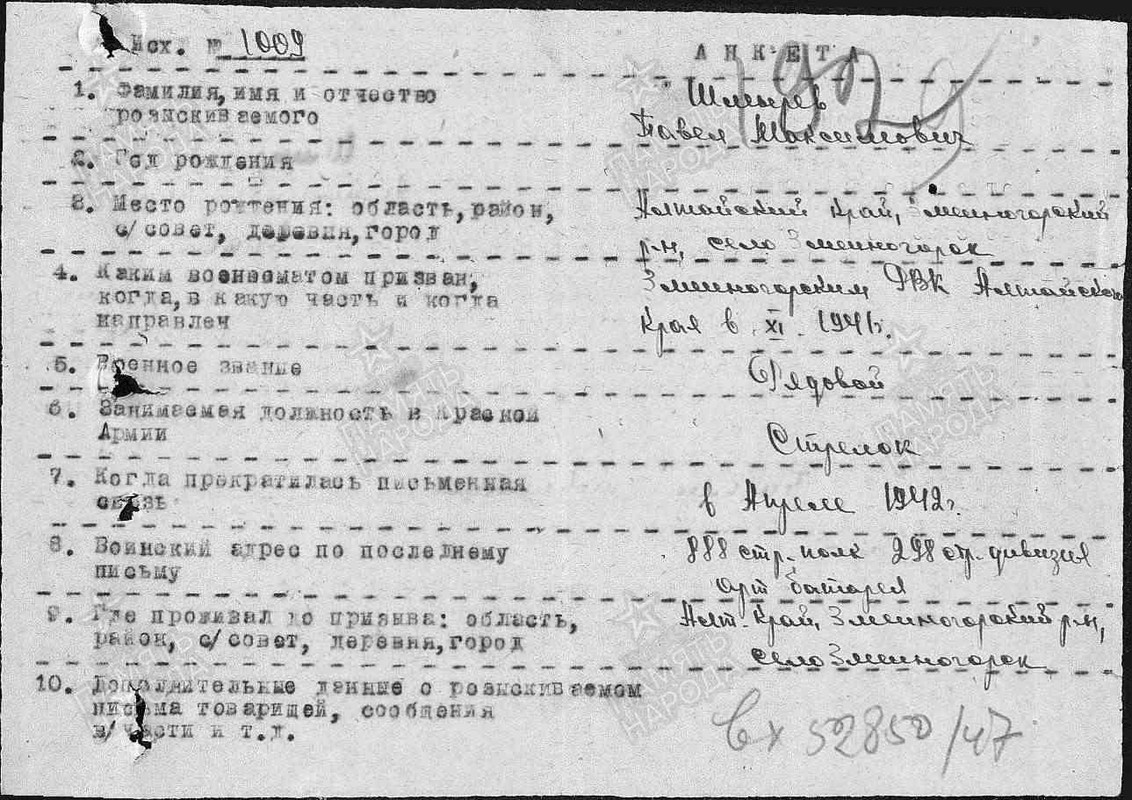 Исх. № 1009
АНКЕТА
1902
1. Фамилия, имя и отчество
розыскиваемого
Павел Максимович
2. Год рождения
3. Место рождения: область, район,
с/совет, деревня, город
Алтайский край, Змеиногорский
р-н, село Змеиногорск
4. Каким военкоматом призван,
когда, в какую часть и когда
направлен
Змеиногорским РВК Алтайского
края в XI. 1941г.
5. Военное звание
Рядовой
6. Занимаемая должность в Красной
Армии
Стрелок
7. Когда прекратилась письменная
связь
в Апреле 1942г.
8. Воинский адрес по последнему
письму
888 стр. полк 298 стр. дивизия
арт батарея
9. Где проживал до призыва: область,
район, с/совет, деревня, город
Алт. Край, Змеиногорский р-н,
село Змеиногорск
10. Дополнительные данные о розыскиваемом
письма товарищей, сообщения
в/части и т.д.
Вх 52850/47
ПАМЯТЬ
НАРОДА